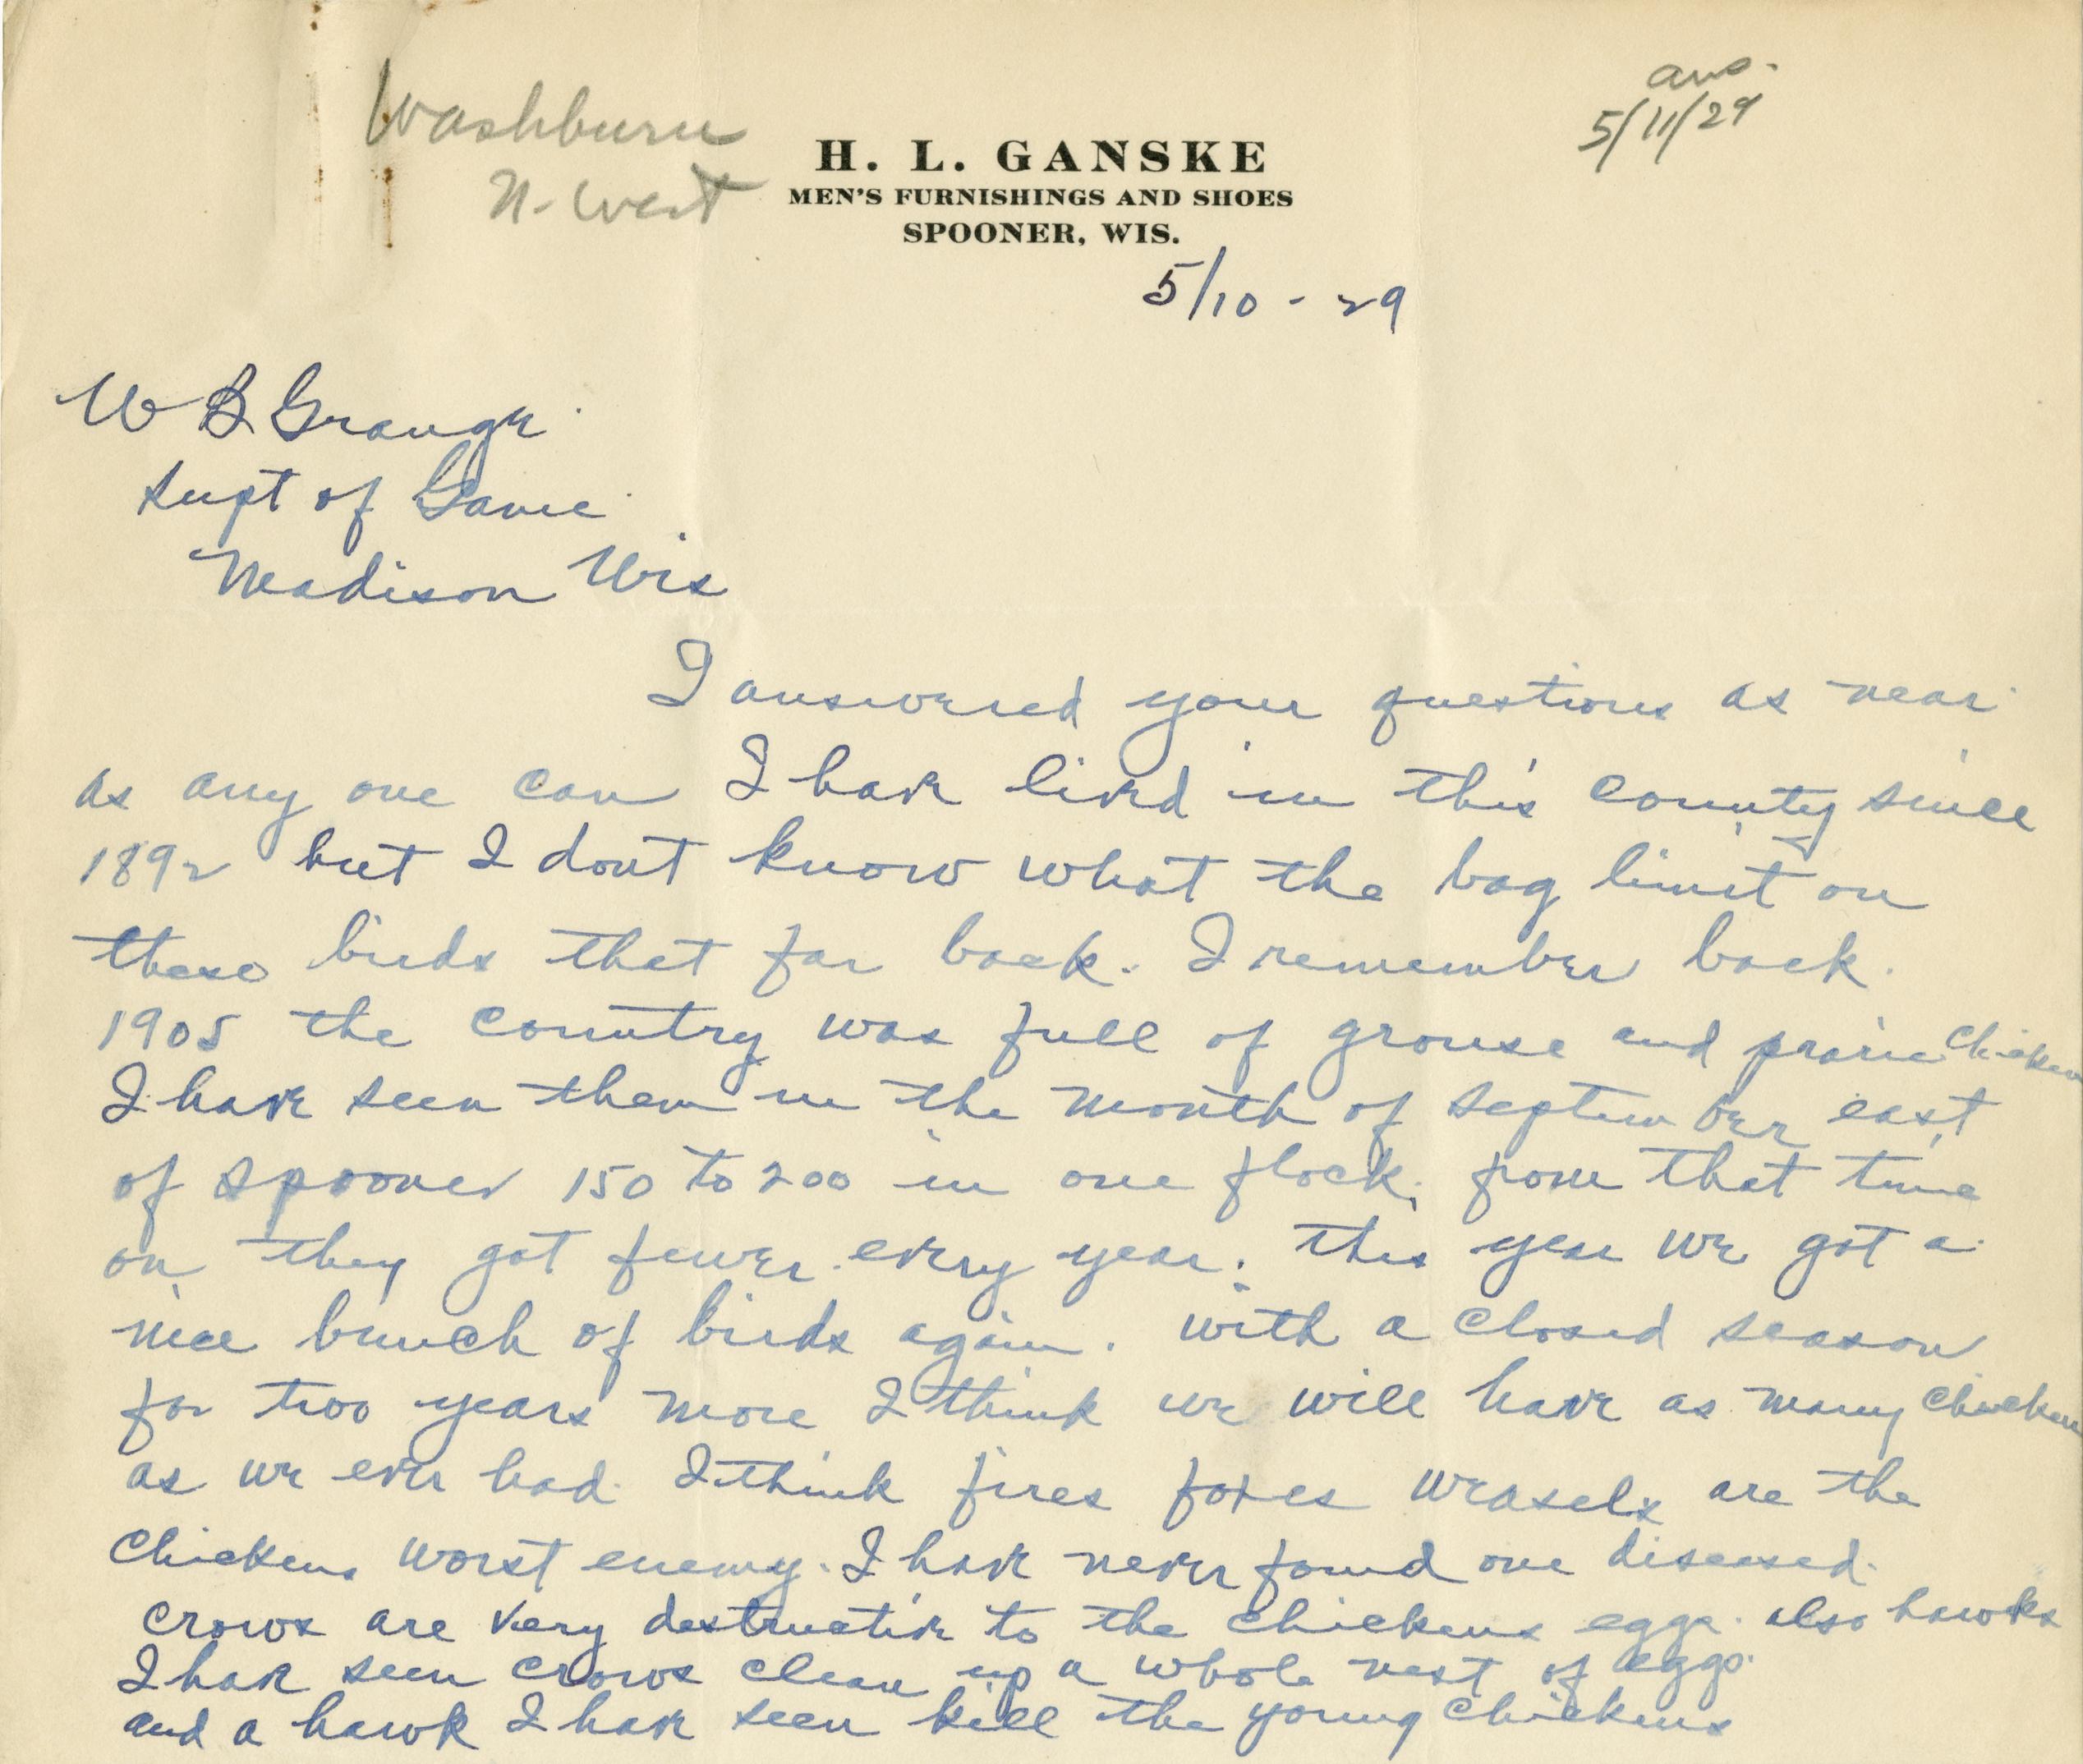 Washburn
N-West
ans.
5/11/29
H. L. GANSKE
MEN'S FURNISHINGS AND SHOES
SPOONER, WIS.
5/10 - 29
W B Grange
Supt of Game
Madison Wis
I answered your questions as near
as any one can I have lived in this county since
1892 but I dont know what the bag limit on
these birds that far back. I remember back.
1905 the country was full of grouse and prarie chicken
I have seen them in the month of September east
of Spooner 150 to 200 in one flock. from that time
on they got fewer every year. this year we got a
nice bunch of birds again. with a closed season
for two years more I think we will have as many chicken
as we ever had. I think fires foxes weasels are the
chickens worst enemy. I have never found one diseased.
crows are very destructive to the chickens eggs. also hawks
I have seen crows clean up a whole nest of eggs.
and a hawk I have seen kill the young chickens